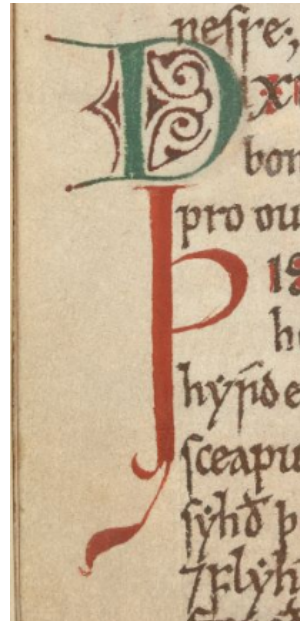 neſſe;
Dix
bon
pro ou
Þis
he
hẏrde
ſceapu
ſẏhð þ
⁊flẏh